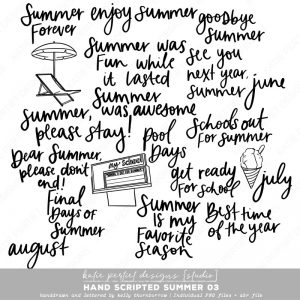 Summer Forever
enjoy Summer
goodbye Summer
Summer was
Fun while
it lasted
See you
next year,
Summer
june
Summer,
please stay!
Summer
was awesome
Pool
Days
Schools out
For Summer
Dear Summer,
please don't
end!
my School
get ready
For School
july
Final
Days of
Summer
Summer
is my
Favorite
Season
Best time
of the year
august
katie pertiet designs [studio]
HAND SCRIPTED SUMMER 03